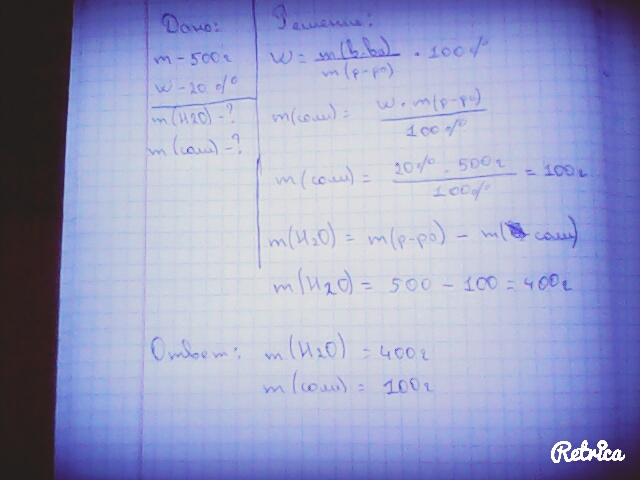 Дано:
m - 500г
w - 20 %
m(H2O) - ?
m(соли) - ?
Решение:
w = m(в-ва) / m(р-ра) · 100 %
m(соли) = w · m(р-ра) / 100 %
m(соли) = 20% · 500г / 100% = 100г
m(H2O) = m(р-ра) - m( соли)
m(H2O) = 500 - 100 = 400г
Ответ: m(H2O) = 400г
m(соли) = 100г
Retrica